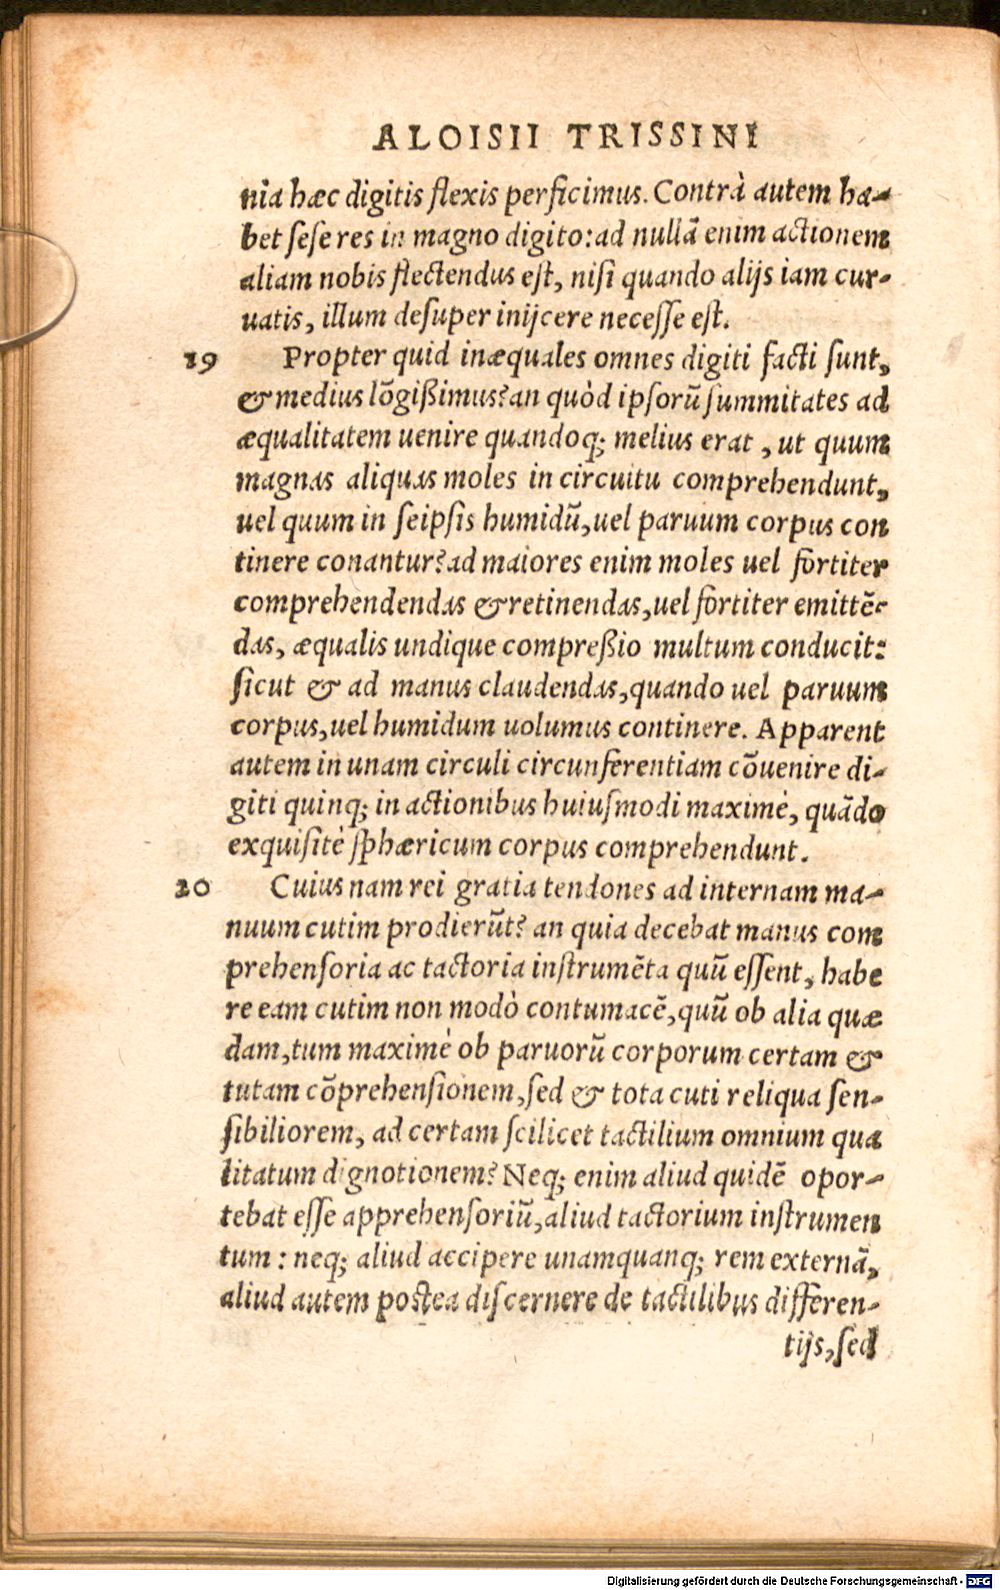 ALOISII TRISSINI
nia hæc digitis flexis perficimus. Contrà autem ha-
bet ſeſe res in magno digito: ad nullã enim actionem
aliam nobis flectendus eſt, niſi quando alijs iam cur-
uatis, illum deſuper inijcere neceſſe eſt.
19 Propter quid inæquales omnes digiti facti ſunt,
& medius lõgißimus? an quòd ipſorũ ſummitates ad
æqualitatem uenire quandoq; melius erat, ut quum
magnas aliquas moles in circuitu comprehendunt,
uel quum in ſeipſis humidũ, uel paruum corpus con
tinere conantur? ad maiores enim moles uel fortiter
comprehendendas & retinendas, uel fortiter emittẽ-
das, æqualis undique compreßio multum conducit:
ſicut & ad manus claudendas, quando uel paruum
corpus, uel humidum uolumus continere. Apparent
autem in unam circuli circunferentiam cõuenire di-
giti quinq; in actionibus huiuſmodi maximè, quãdo
exquiſitè ſphæricum corpus comprehendunt.
20 Cuius nam rei gratia tendones ad internam ma-
nuum cutim prodierũt? an quia decebat manus com
prehenſoria ac tactoria inſtrumẽta quũ eſſent, habe
re eam cutim non modò contumacẽ, quũ ob alia quæ
dam, tum maximè ob paruorũ corporum certam &
tutam cõprehenſionem, ſed & tota cuti reliqua ſen-
ſibiliorem, ad certam ſcilicet tactilium omnium qua
litatum dignotionem? Neq; enim aliud quidẽ opor-
tebat eſſe apprehenſoriũ, aliud tactorium inſtrumen
tum: neq; aliud accipere unamquanq; rem externã,
aliud autem poſtea diſcernere de tactilibus differen-
tijs, ſed
Digitalisierung gefördert durch die Deutsche Forschungsgemeinschaft - DFG